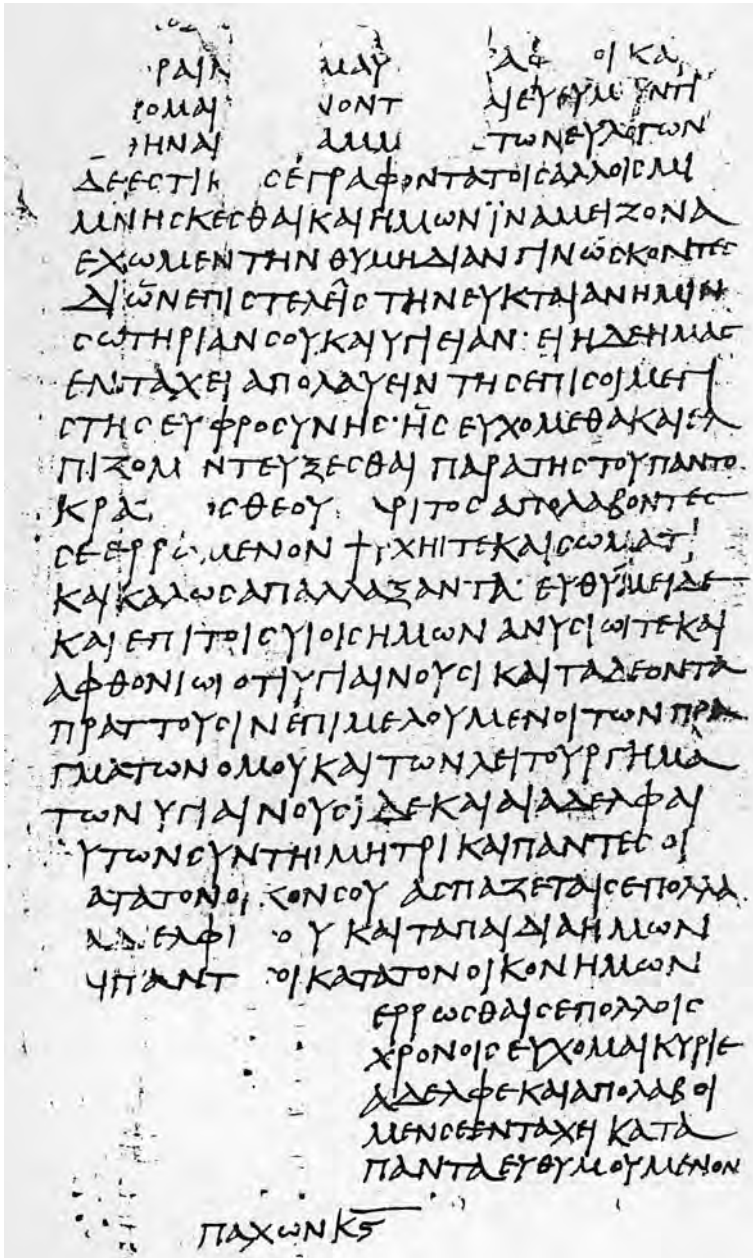 ΡΑΙ ΜΑΥ ΑΦ ΟΙΚΑ
ΡΟΜΑΙ ΝΟΝΤ ΑΙΕΥΘΥΜ ΝΤΙ
ΗΝΑΙ ΑΜΜ ΤΩΝΕΥΛΟΓΩΝ
ΔΕΕϹΤΙΝ ϹΕΓΡΑΦΟΝΤΑΤΟΙϹΑΛΛΟΙϹΜΙ
ΜΝΗϹΚΕϹΘΑΙΚΑΙΗΜΩΝΪΝΑΜΕΙΖΟΝΑ
ΕΧΩΜΕΝΤΗΝΘΥΜΗΔΙΑΝΓΙΝΩϹΚΟΝΤΕϹ
ΔΙΩΝΕΠΙϹΤΕΛΕΙϹΤΗΝΕΥΚΤΑΙΑΝΗΜΙΝ
ϹΩΤΗΡΙΑΝϹΟΥΚΑΙΥΓΙΕΙΑΝ· ΕΙΗΔΕΗΜΑϹ
ΕΝΤΑΧΕΙΑΠΟΛΑΥΕΙΝΤΗϹΕΠΙϹΟΙΜΕΓΙ
ϹΤΗϹΕΥΦΡΟϹΥΝΗϹ·ΗϹΕΥΧΟΜΕΘΑΚΑΙΕΛ
ΠΙΖΟΜ ΝΤΕΥΞΕϹΘΑΙΠΑΡΑΤΗϹΤΟΥΠΑΝΤΟ
ΚΡΑ ΟϹΘΕΟΥ ΧΡΙΤΟϹΑΠΟΛΑΒΟΝΤΕϹ
ϹΕΕΡΡΩΜΕΝΟΝΨΥΧΗΙΤΕΚΑΙϹΩΜΑΤΙ
ΚΑΙΚΑΛΩϹΑΠΑΛΛΑΞΑΝΤΑ· ΕΥΘΥΜΕΙΔΕ
ΚΑΙΕΠΙΤΟΙϹΥΙΟΙϹΗΜΩΝΑΝΥϹΙΩΙΤΕΚΑΙ
ΑΦΘΟΝΙΩΙΟΤΙΥΓΙΑΙΝΟΥϹΙΚΑΙΤΑΔΕΟΝΤΑ
ΠΡΑΤΤΟΥϹΙΝΕΠΙΜΕΛΟΥΜΕΝΟΙΤΩΝΠΡΑ
ΓΜΑΤΩΝΟΜΟΥΚΑΙΤΩΝΛΕΙΤΟΥΡΓΗΜΑ
ΤΩΝΥΓΙΑΙΝΟΥϹΙΔΕΚΑΙΑΙΑΔΕΛΦΑΙ
ΥΤΩΝϹΥΝΤΗΙΜΗΤΡΙΚΑΙΠΑΝΤΕϹΟΙ
ΑΤΑΤΟΝΟΙΚΟΝϹΟΥΑϹΠΑΖΕΤΑΙϹΕΠΟΛΛΑ
ΑΔΕΛΦΙ ΟΥΚΑΙΤΑΠΑΙΔΙΑΗΜΩΝ
ΠΑΝΤ ΟΙΚΑΤΑΤΟΝΟΙΚΟΝΗΜΩΝ
ΕΡΡΩϹΘΑΙϹΕΠΟΛΛΟΙϹ
ΧΡΟΝΟΙϹΕΥΧΟΜΑΙΚΥΡΙΕ
ΑΔΕΛΦΕΚΑΙΑΠΟΛΑΒΟΙ
ΜΕΝϹΕΕΝΤΑΧΕΙΚΑΤΑ
ΠΑΝΤΑΕΥΘΥΜΟΥΜΕΝΟΝ
ΠΑΧΩΝΚϚ